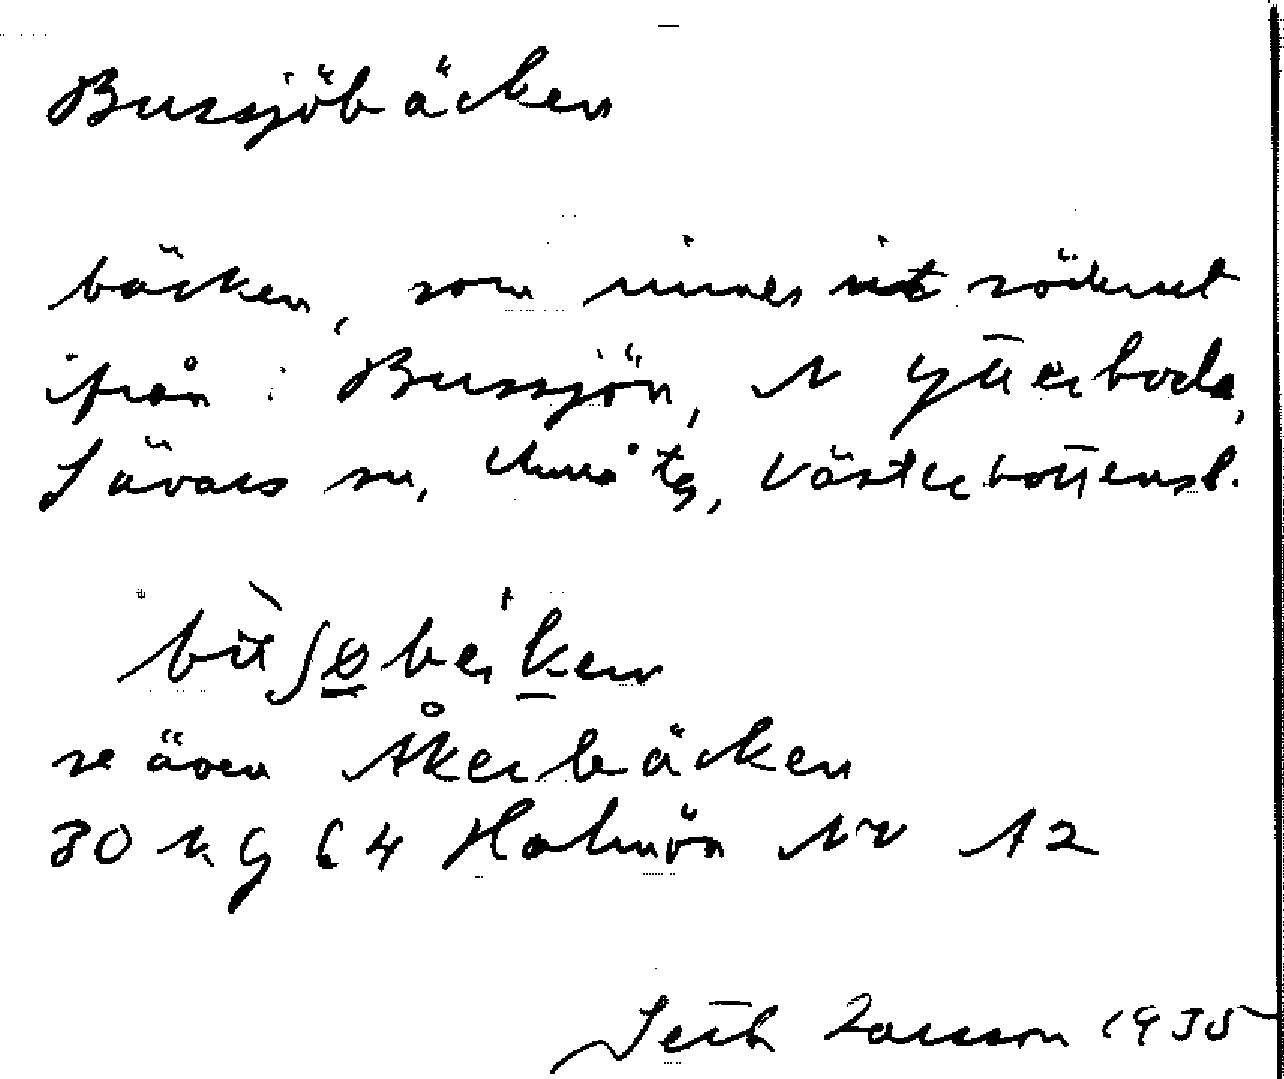 Bussjöbäcken
bäcken, som rinner ut söderut
ifrån: Bussjön, N Ytterboda,
Sävars sn, Umeå tg, Västerbottensl.
se även Åkerbäcken
30 NG 64 Holmön NV 12
Seth Larsson 1935